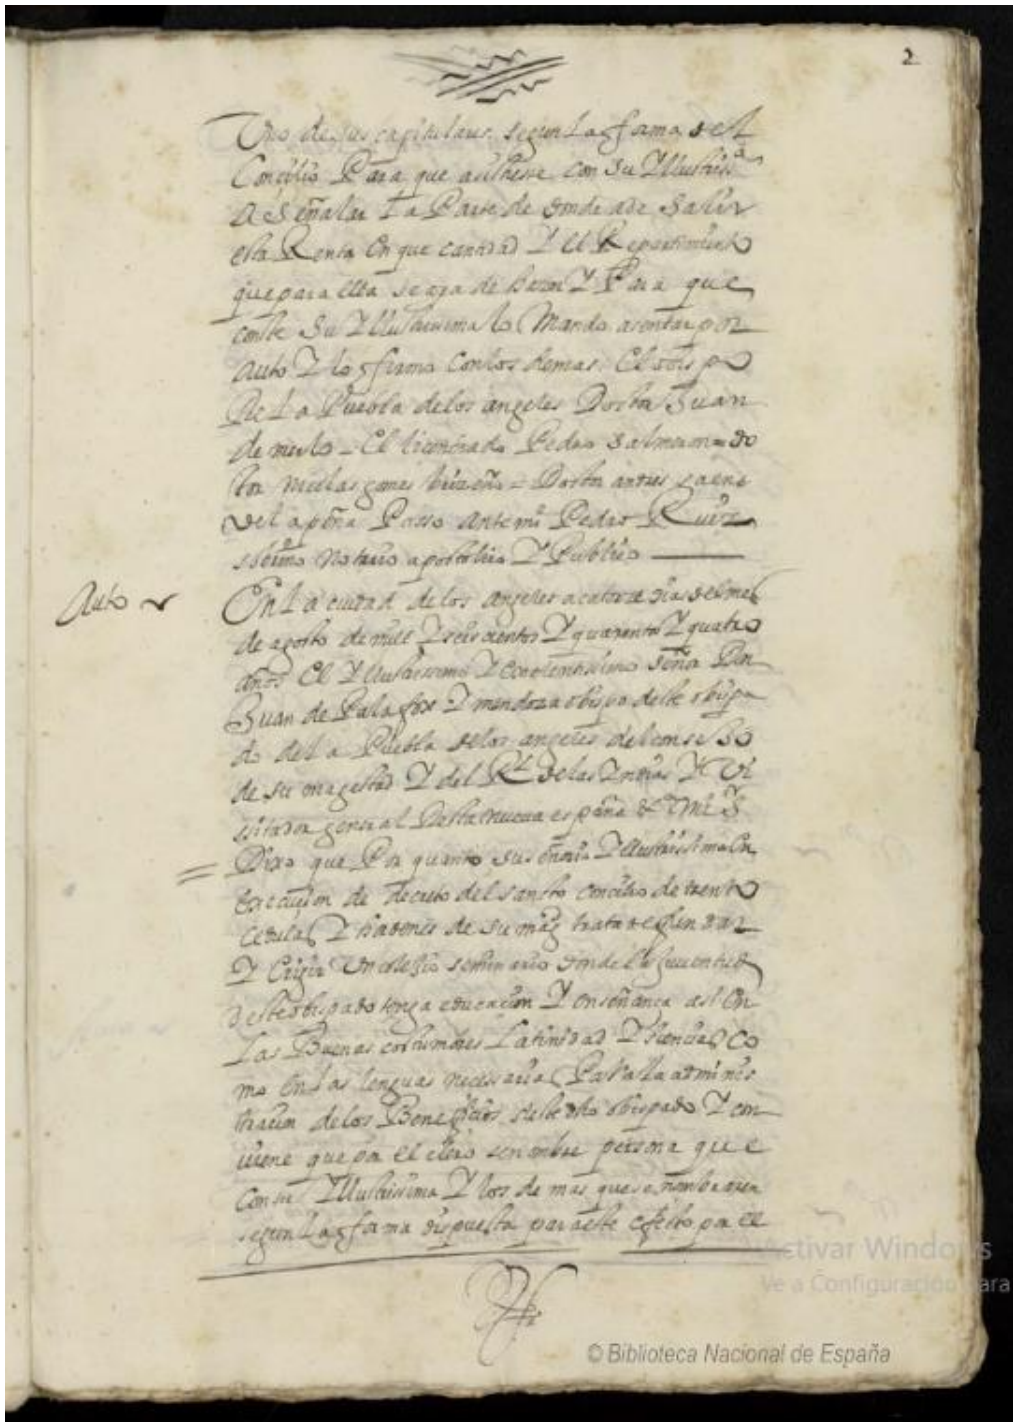 2
Uno de sus capitulares segun la forma del
Concilio Para que asistiesse con su Yllustriss.ª
a señalar La Parte de donde ade salir
esta Renta en que cantidad Y el Repartimiento
que para ella se aya de hazer Y Para que
conste Su Yllustrissima lo Mando asentar por
auto Y lo firmo con los demas. El obispo
De La Puebla de los angeles Doctor Juan
de merlo = El licenciado Pedro Salmeron = do
tor Nicolas gomes briseño = Doctor andres saens
de la peña Passo ante mi Pedro Ruiz
notario apostolico Y Publico
Auto
En La ciudad de los angeles a catorze dias del mes
de agosto de mill Y seiscientos Y quarenta Y quatro
años El Yllustrissimo Y Excelentissimo señor Don
Juan de Palafox Y mendoza obispo deste obispa
do de La Puebla de los angeles del consejo
de su magestad Y del Rl. de las Yndias Y Vi
ssitador general Desta nueva españa &
Dixo que Por quanto su señoria Yllustrissima En
execucion de decreto del sancto concilio de trento
Cedulas Y hordenes de su mag. trata de fundar
Y Erigir Un colegio seminario donde la Juventud
deste obispado tenga educacion Y enseñança asi En
Las Buenas costumbres Latinidad Y sciencias Co
mo En las lenguas necessarias Para la adminis
tracion de los Beneficios deste dho obispado Y con
viene que por el clero se nombre persona que
con su Yllustrissima Y los demas que se nombraren
segun La forma dispuesta para este efecto por el
Activar Windows
Ve a Configuración para
© Biblioteca Nacional de España